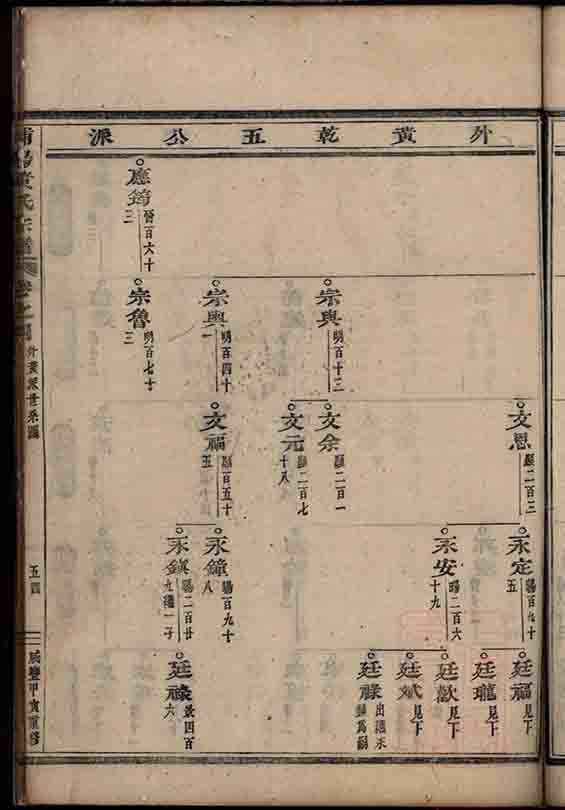 外黄乾五公派
應筠 晉百六十三
宗興 明百十三
宗興 明百四十一
宗魯 明百七十三
文恩 顯二百三
文余 顯二百一
文元 顯二百七十八
文福 顯百五十五
永定 賜百九十五
永安 賜二百六十九
永鐘 賜百九十八
永鎮 賜二百廿九繼一子
廷福 見下
廷瓏 見下
廷歡 見下
廷斌 見下
廷祿 出繼永鎮爲嗣
廷祿 四百六
黄氏宗譜
卷之四
外黄派世系圖
五四
咸豐甲寅重修